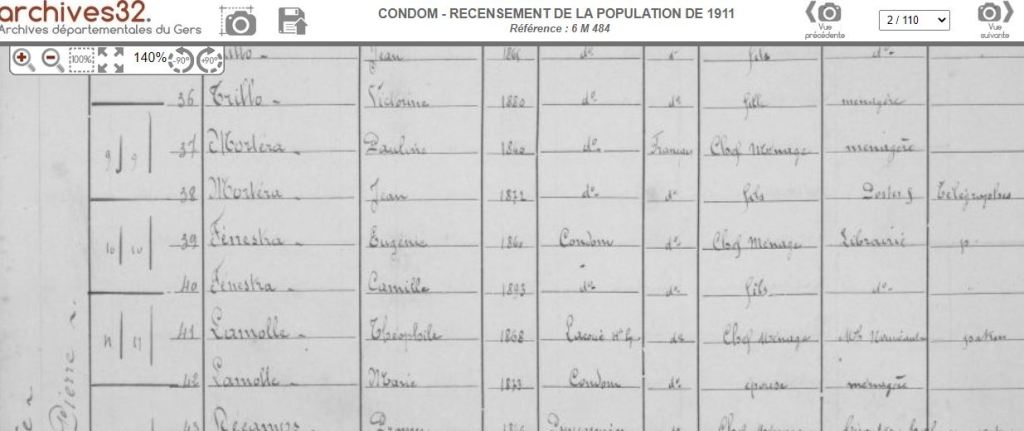 archives32.
Archives départementales du Gers
CONDOM - RECENSEMENT DE LA POPULATION DE 1911
Référence : 6 M 484
Vue précédente
2 / 110
Vue suivante
100%
140%
-90°
+90°
Jean fils dº
36 Trillo Victorine 1880 dº dº fille menagère
37 Mortéra Pauline 1840 dº Français Chef Menage menagère
38 Mortéra Jean 1872 dº dº fils Postes & Télégraphes
9 9
39 Fenestra Eugénie 1860 Condom dº Chef Menage Librairie p.
10 10
40 Fenestra Camille 1893 dº dº fils dº
11 11
41 Lamolle Théophile 1868 dº Chef Menage patron
42 Lamolle Marie 1873 Condom dº epouse menagère
43
Pierre